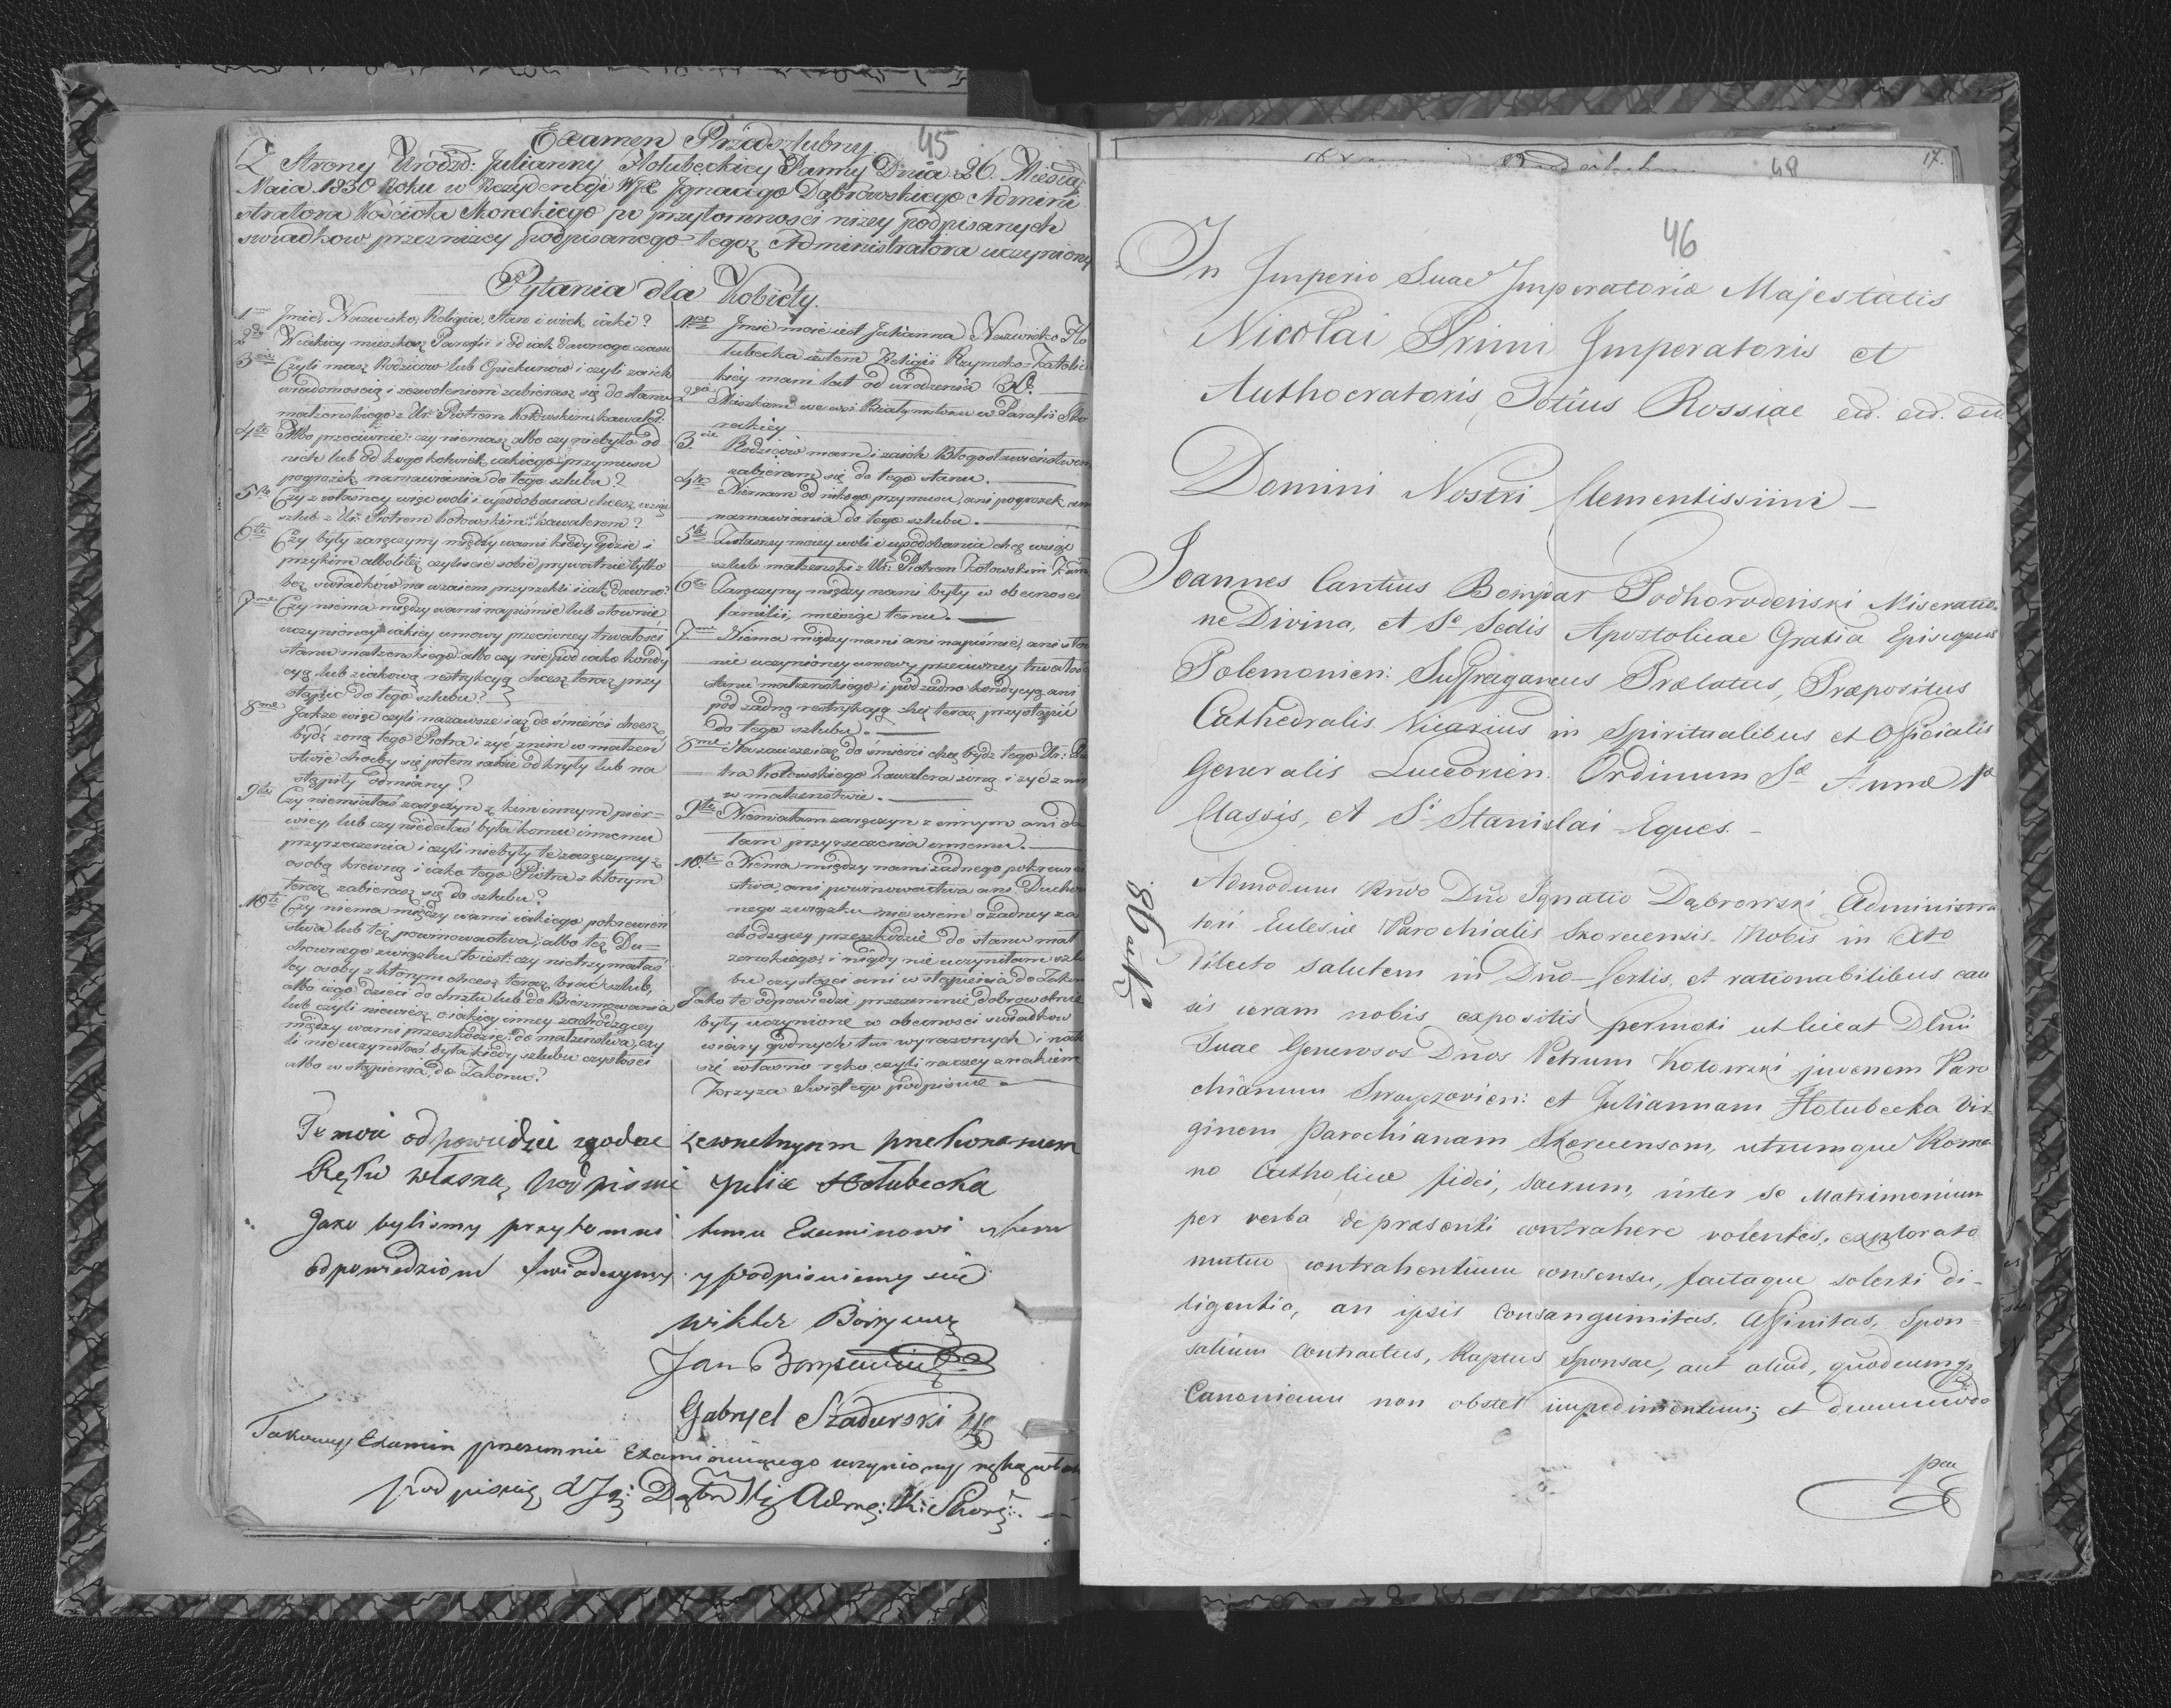 Examen Przedszlubny. 45
Z Strony Urodzo: Julianny Hołubeckiey Panny Dnia 26. Miesią:
Maia 1830 Roku w Rezydencyi WJX Jgnacego Dąbrowskiego Admini
stratora Kościoła Skoreckiego po przytomności niżey podpisanych
swiadkow przezniżey podpisanego tegoż Administratora uczyniony
Pytania dla Kobiety.
1mo Jmie, Nazwisko, Religia, Stan i wiek iaki?
2do W iakiey mieszkasz Parafii i od iak dawnego czasu
3cie Czyli masz Rodzicow lub Opiekunow i czyli zaich
wiadomością i zezwoleniem zabierasz się do stanu
małżenskiego z Ur: Piotrem Kotowskim kawaler:
4te Albo przeciwnie: czy niemasz albo czy niebyło od
nich lub od kogo kolwiek iakiego przymusu
pogrożek namawiania do tego szlubu?
5te Czy z własney więc woli i upodobania chcesz wziąć
szlub z Ur: Piotrem Kotowskim kawalerem?
6te Czy były zaręczyny między wami kiedy gdzie i
przykim albo też czyliscie sobie prywatnie tylko
bez swiadków na wzaiem przyrzekli i iak dawno?
7me Czy niema między wami napismie lub słownie
uczynioney iakiey umowy przeciwney trwałości
stanu małzenskiego albo czy nie pod iako kondy
cyą lub ziakową restrykcyą chcesz teraz przy
stąpic do tego szlubu?
8me Jakże więc czyli nazawsze iaz do śmierci chcesz
bydź żoną tego Piotra i żyć znim w małżeń
stwie choćby się potem iakie odkryły lub na
stąpiły odmiany?
9te Czy niemiałaś zaręczyn z kim innym pier=
wiey, lub czy niedałaś była komu innemu
przyrzeczenia i czyli niebyły te zaręczyny z
osobą krewną i iako tego Piotra z ktorym
teraz zabierasz się do szlubu?
10te Czy niema między wami iakiego pokrewień
stwa lub też powinowactwa, albo też Du=
chownego związku to iest: czy nietrzymałaś
tey osoby z ktorym chcesz teraz brać szlub,
albo iego dzieci do chrztu lub do Bierzmowania
lub czyli niewiesz o iakiey inney zachodzącey
między wami przeszkodzie do małżenstwa, czy
li nie uczyniłaś była kiedy szlubu czystości
albo wstąpienia do Zakonu?
1me Jmie moie iest Julianna Nazwisko Ho
łubecka iestem Religii Rzymsko-Katolic
kiey mam lat od urodzenia
2gie Mieszkam we wsi Białymstoku w Parafii Sko
reckiey
3cie Rodziców mam i zaich Błogosławieństwem
zabieram się do tego stanu.
4te Niemam od nikogo przymusu, ani pogrożek ani
namawiania do tego szlubu.
5te Zwłasney moiey woli i upodobania chcę wziąć
szlub małzenski z Ur: Piotrem Kotowskim Kaw
6te Zaręczyny między nami były w obecnosci
familii, miesiąc temu.
7me Niema między nami ani napismie, ani sło
nie uczynioney umowy przeciwney trwałoś
stanu małżenskiego i pod żadną kondycyą ani
pod żadną restrykcyą chcę teraz przystąpić
do tego szlubu.
8me Nazawsze iaż do śmierci chcę bydz tego Ur: Pio
tra Kotowskiego Kawalera żoną i żyć z nim
w małżenstwie.
9te Niemiałam zaręczyn z innym ani da
łam przyrzeczenia innemu.
10te Niema między nami żadnego pokrewień
stwa, ani powinowactwa ani Ducho
nego związku nie wiem o żadney za
chodzącey przeszkodzie do stanu mał
żenskiego, i nigdy nie uczyniłam szlu
bu czystości ani wstąpienia do Zakonu
Jako te odpowiedzi przezemnie dobrowolnie
były uczynione w obecnosci swiadkow
wiary godnych tu wyrażonych i nato
się własno ręko czyli raczey znakiem
Krzyża Swiętego podpisuie
Te moie odpowiedzie zgodne zewnetrznym przekonaniem
Ręku własną podpisuie Julia Hołubecka
Jako bylismy przytomni temu Examinowi
odpowiedziom swiadczymy y podpisuiemy się
Wiktor
Jan
Gabryel Szadurski
Takowyy Examin przezemnie Examinuiącego uczyniony ręką
podpisuię X Jg: Dąbrowski Adm: K: Skore:
48 17.
46
In Imperio Suae Imperatoriæ Majestatis
Nicolai Primi Imperatoris et
Authocratoris Totius Rossiae etc. etc. etc.
Domini Nostri Clementissimi —
Joannes Cantius Bompar Podhorodeński Miseratio-
ne Divina, et Sæ Sedis Apostolicae Gratia Episcopus
Polemonien: Suffraganeus Prælatus, Præpositus
Cathedralis Vicarius in Spiritualibus et Officialis
Generalis Luceorien. Ordinum Sæ Annæ 1æ
Classis, et Si Stanislai Eques. —
Admodum Rndo Dño Ignatio Dąbrowski Administra
tori Eclesiæ Parochialis Skorecensis Nobis in Xto
dilecto salutem in Dño — Certis, et rationabilibus cau
sis coram nobis expositis permoti ut liceat Dłni
Suae Generosos Dños Petrum Kotowski juvenem Paro
chianum et Juliannam Hołubecka Vir-
ginem Parochianam Skorecensem, utrumque Roma
no Catholicæ fidei, sacrum, inter se Matrimonium
per verba de præsenti contrahere volentes, explorato
mutuo contrahentium consensu, factaque solerti di-
ligentia, an ipsis Consanguinitas, Affinitas, Spon=
salium Contractus, Raptus Sponsae, aut aliud, quodcumq
Canonicum non obstet impedimentum; et dummodo